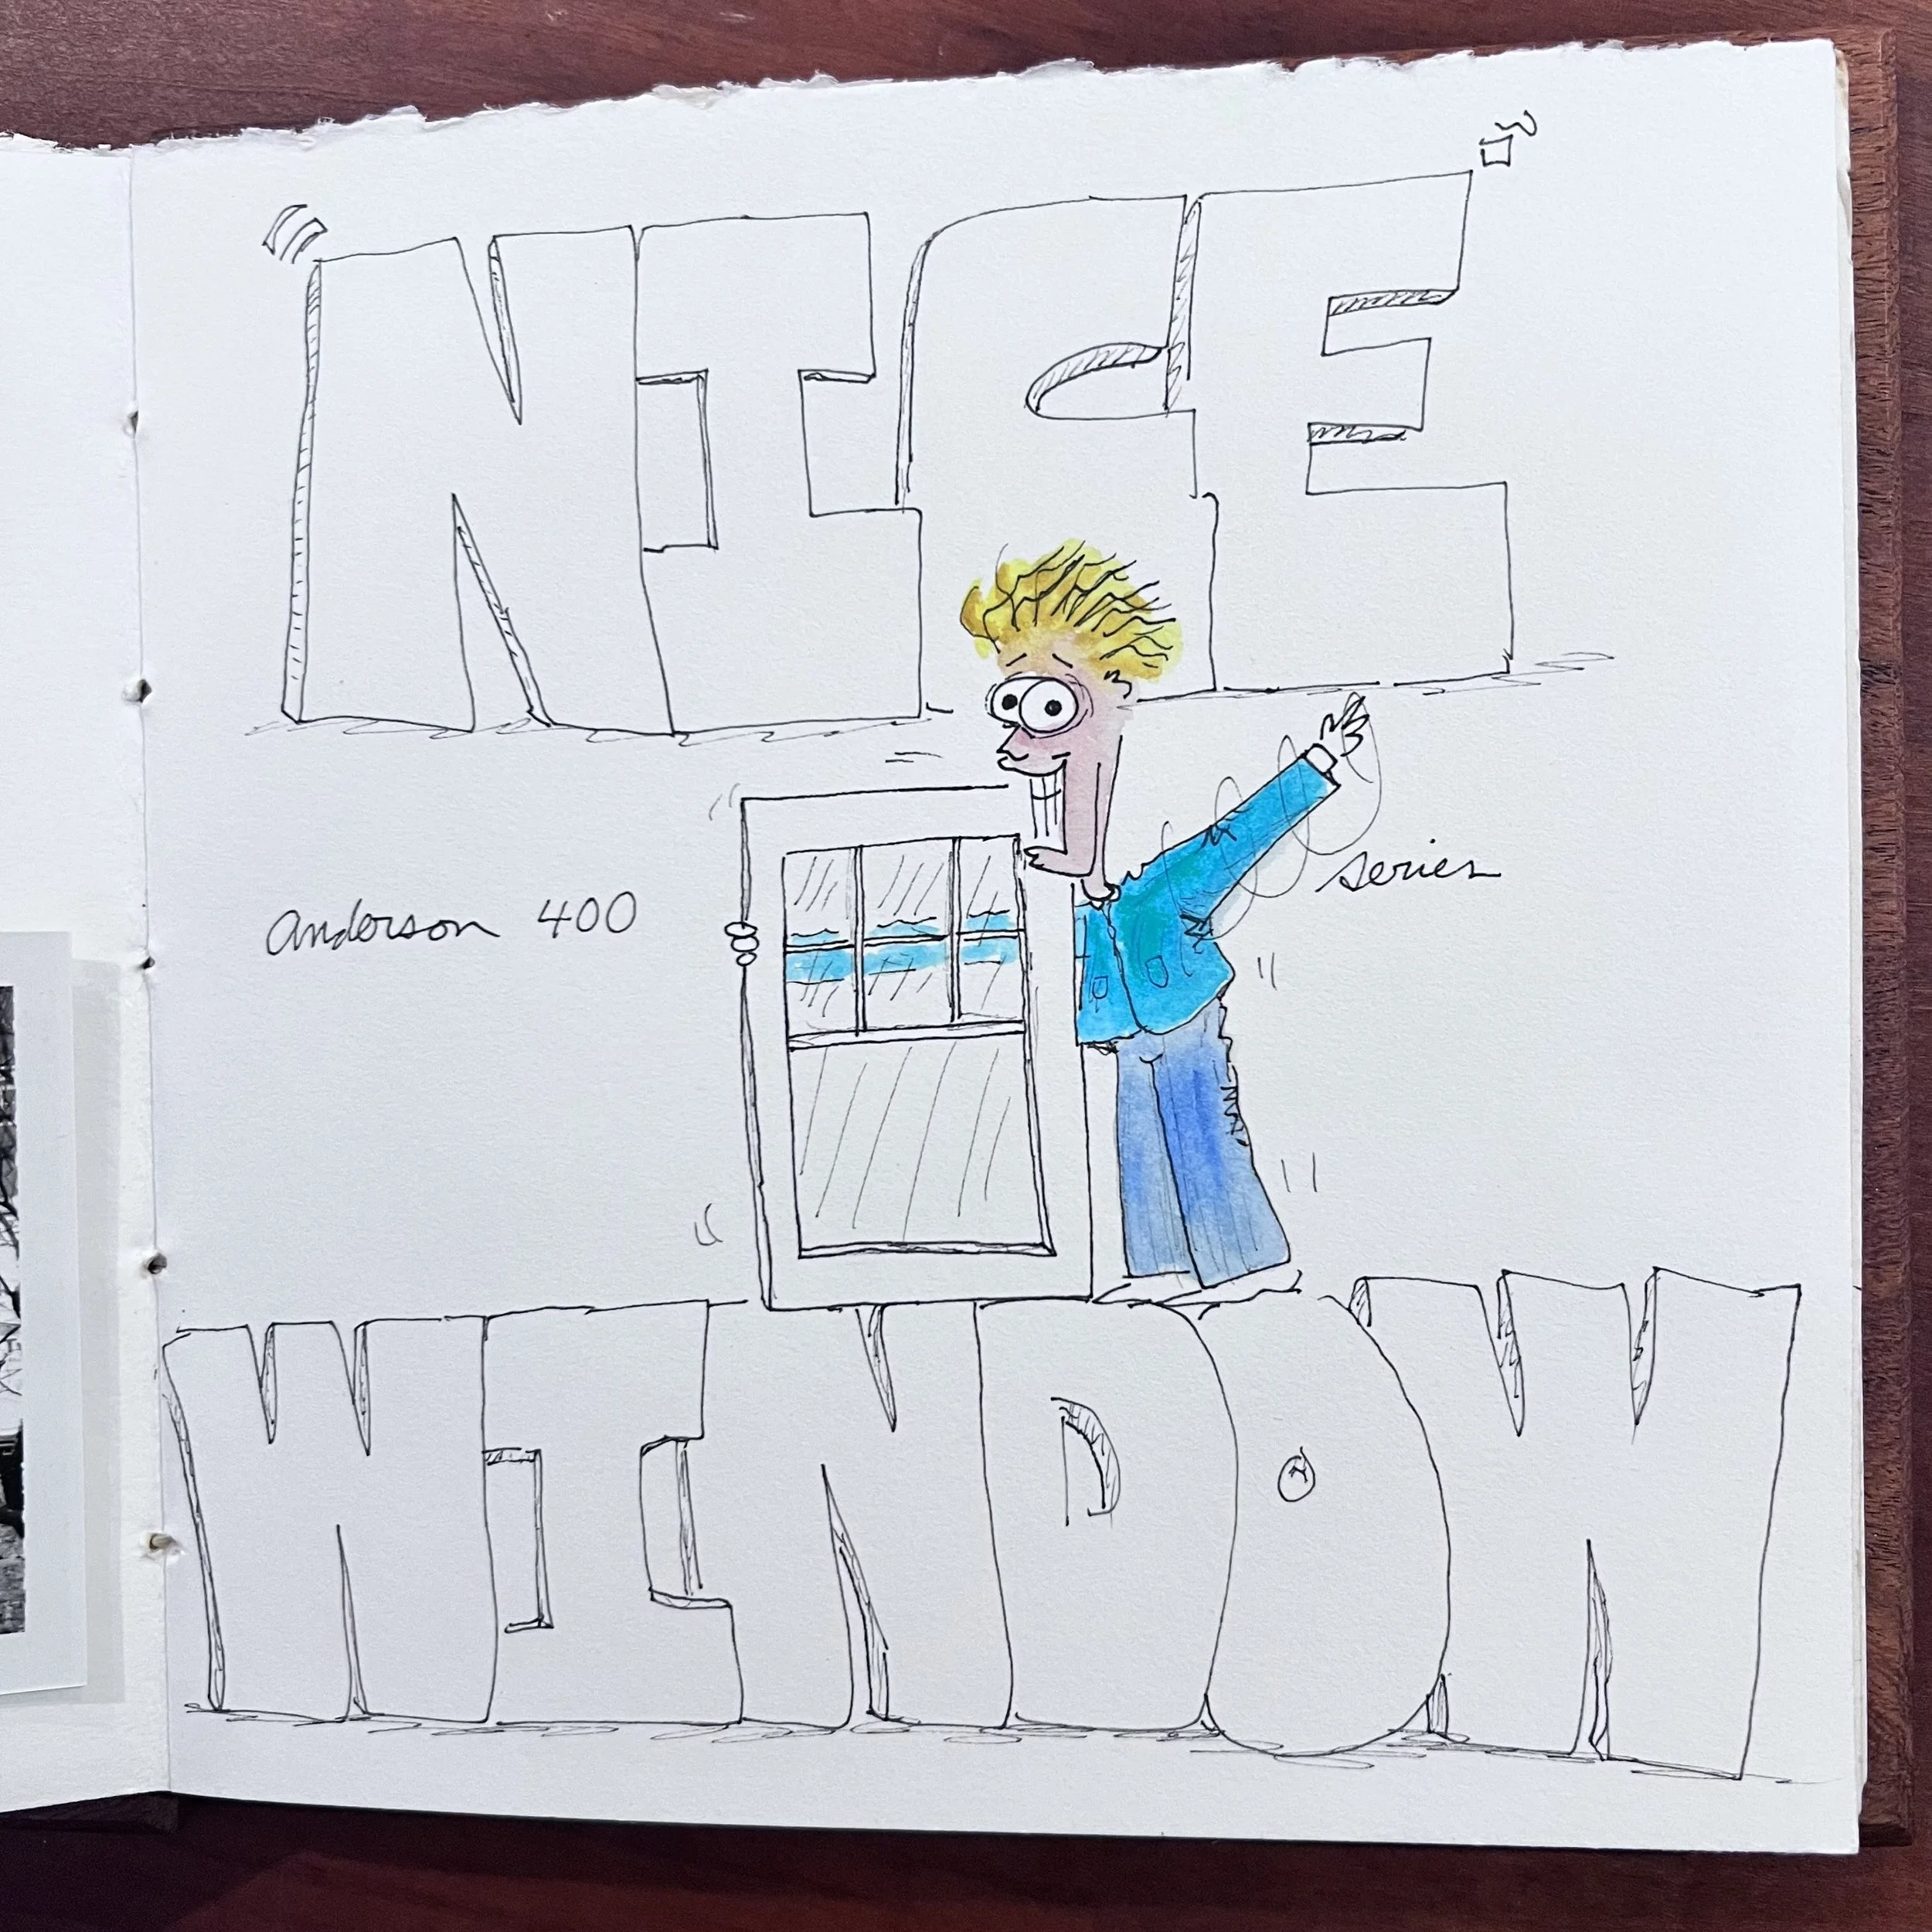 NICE
Anderson 400 series
WINDOW